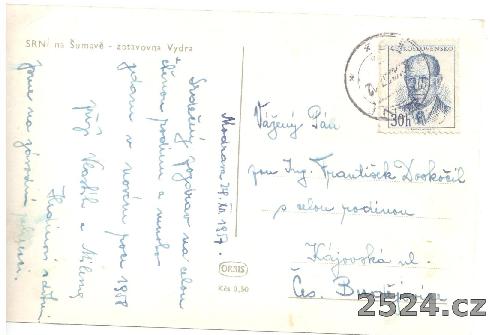 SRNÍ na Šumavě - zotavovna Vydra
Modrava 28. XII 1957.
Srdečný pozdrav na celou
ctěnou rodinu a mnoho
zdaru v novém roce 1958
přejí Vlastík a Milena
jsme na závodní
ČESKOSLOVENSKO
30h
Vážený Pán
pan Ing. František Doskočil
s celou rodinou
Kájovská ul.
Čes. Budějovice
ORBIS
Kčs 0,50
2524.cz